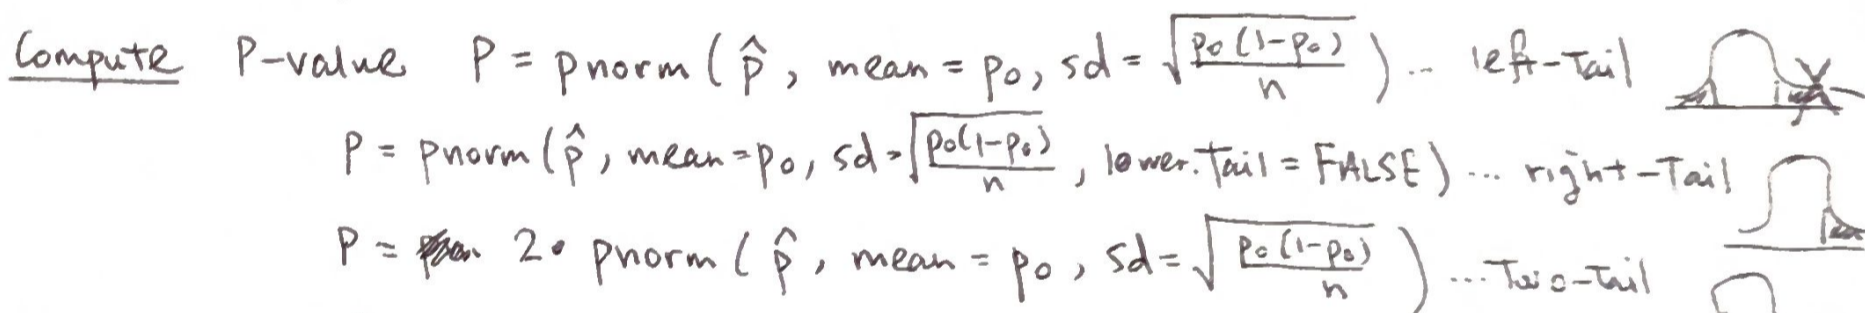 Compute P-value P = pnorm ( p̂ , mean = p₀, sd = √(p₀(1-p₀)/n) ) ... left-Tail
P = pnorm ( p̂ , mean = p₀, sd = √(p₀(1-p₀)/n) , lower.Tail = FALSE ) ... right-Tail
P = 2 • pnorm ( p̂ , mean = p₀ , sd = √(p₀(1-p₀)/n) ) ... Two-Tail